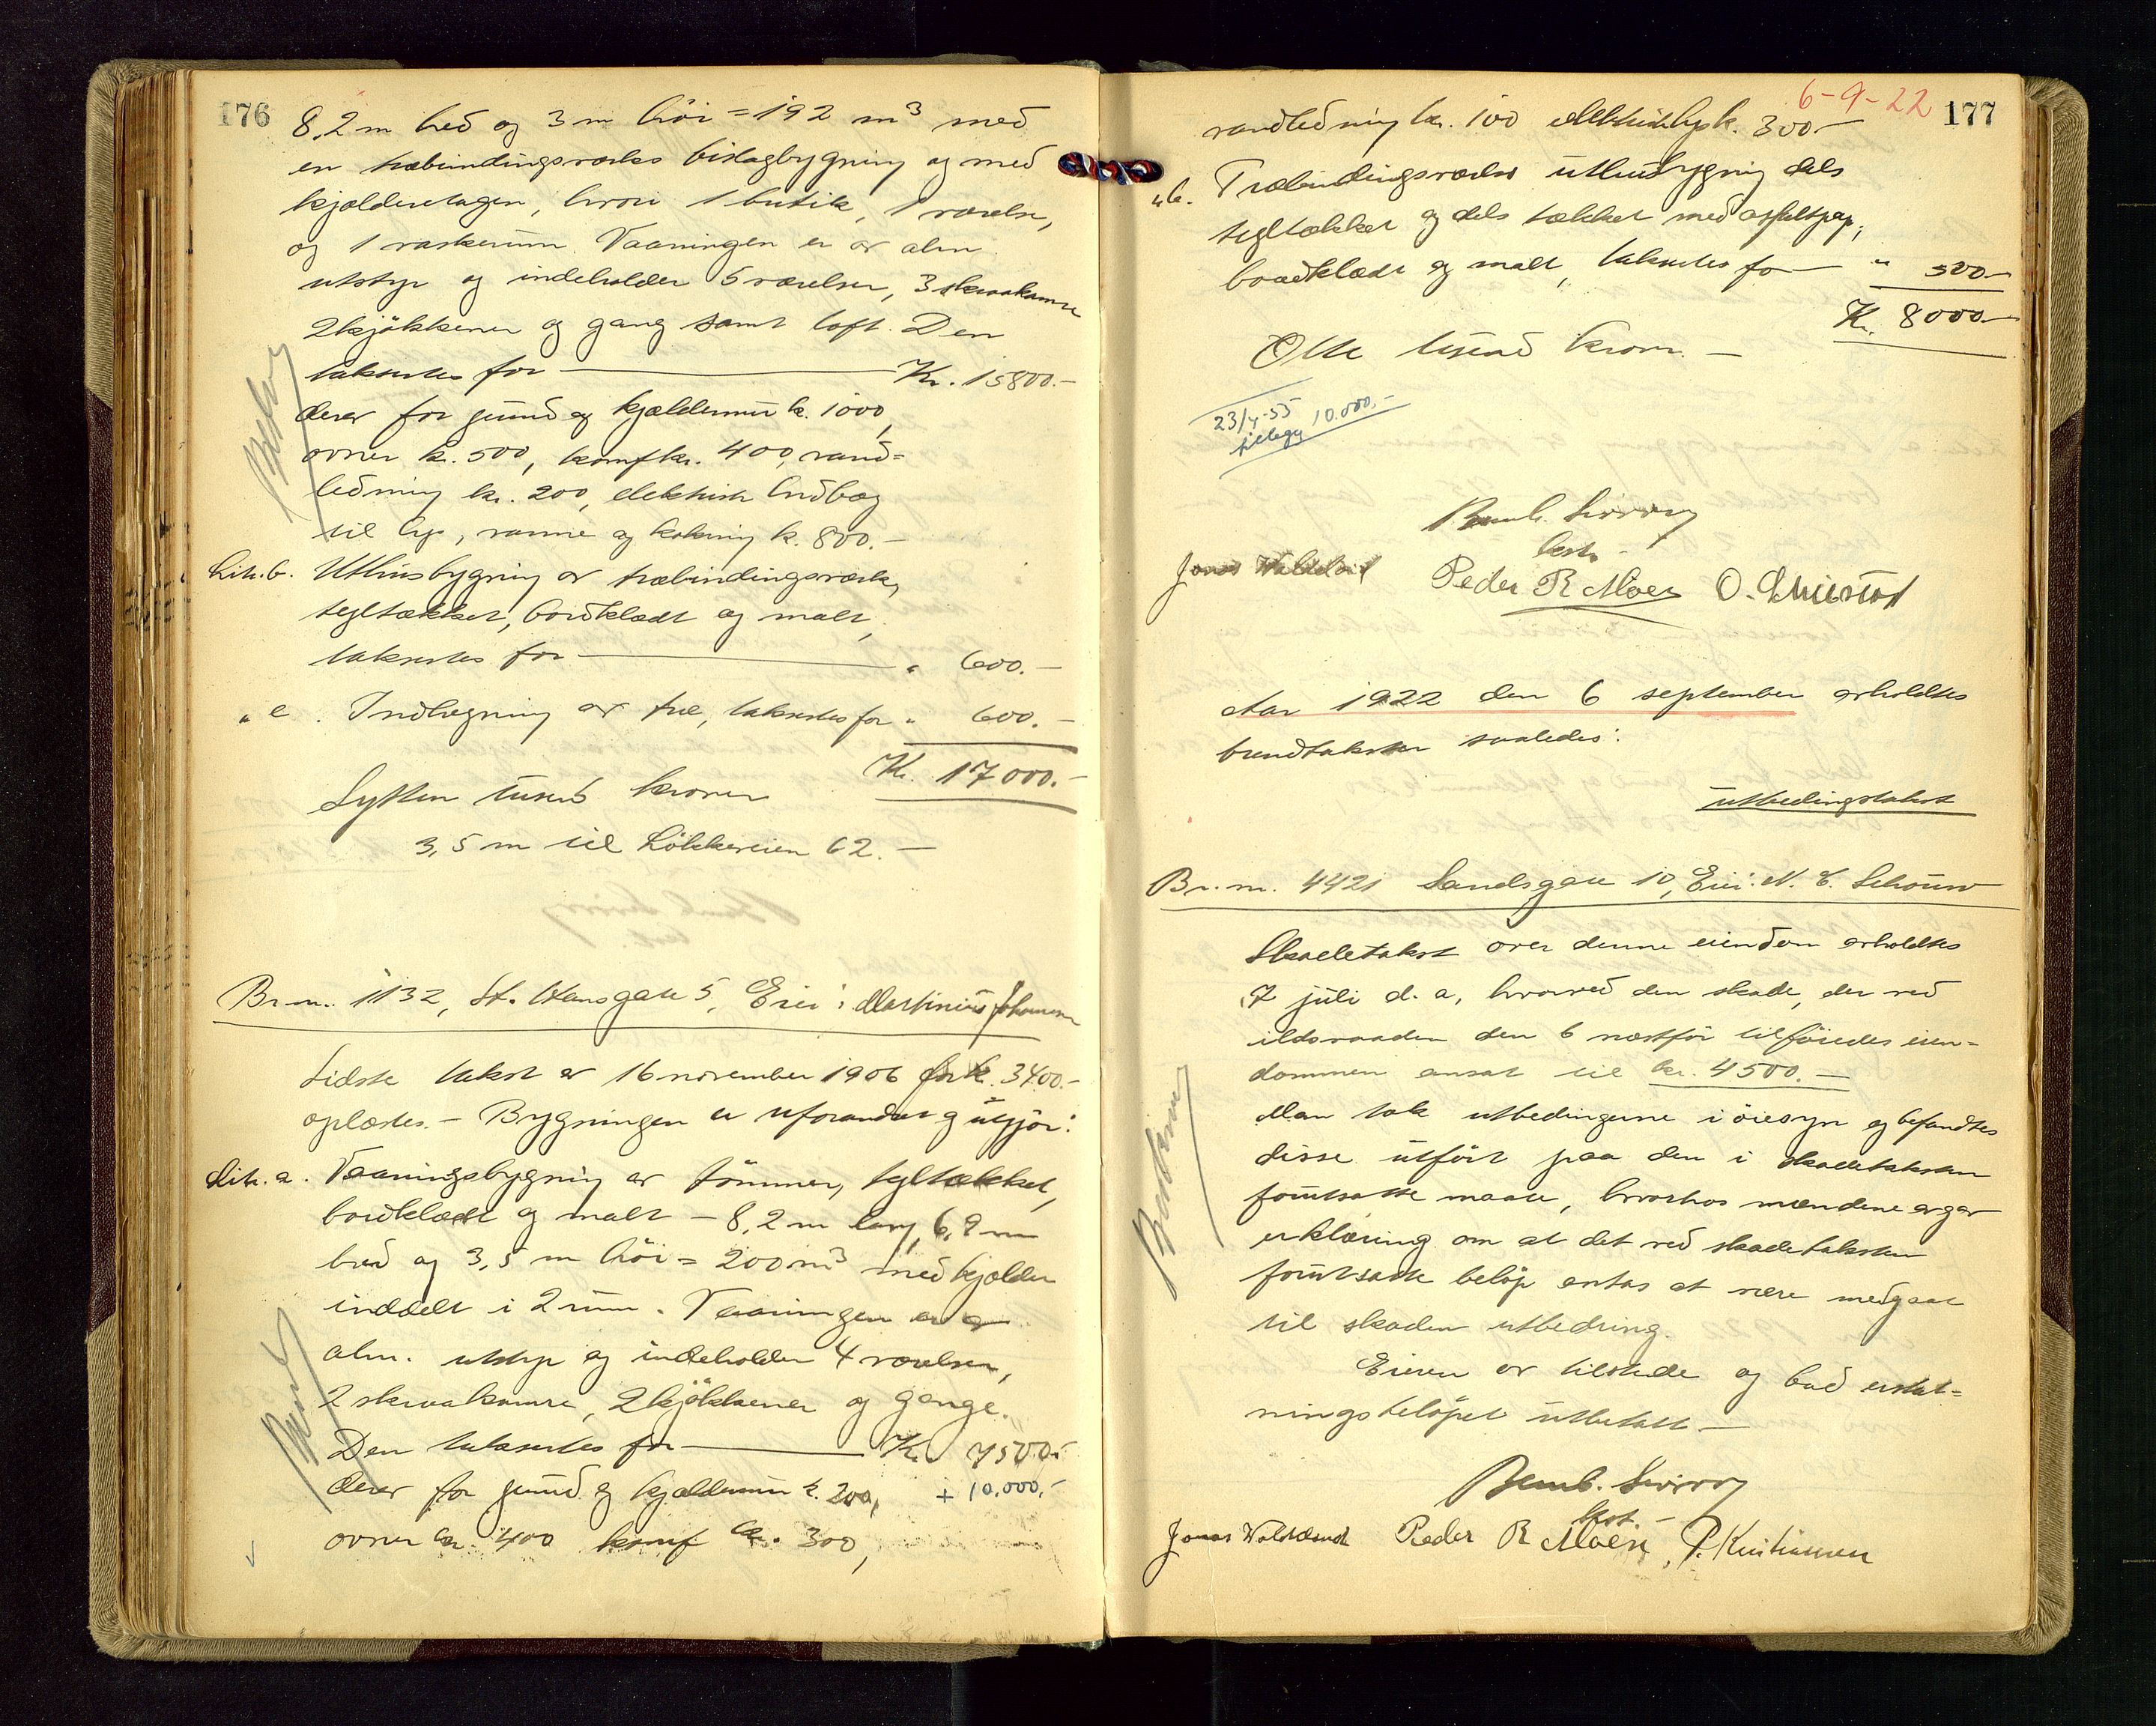 176
8,2 m bred og 3 m höi = 192 m³ med
en træbindingsverks bislagbygning og med
kjælderetagen, hvori 1 butik, 1 værelse,
og 1 vaskerum. Vaaningen er av alm.
utstyr og indeholder 5 værelser, 3 skraakamre
2 kjökkener og gang samt loft. Den
taksertes for Kr. 15800.-
derav for grund og kjældermur kr. 1000,
ovner kr. 500, komf kr. 400, vand=
ledning kr. 200, elektrisk indlæg
til lys, varme og kokning kr. 800.-
Lit. b. Uthusbygning av træbindingsverk,
tegltækket, bordklædt og malt,
taksertes for " 600.-
" c. Indhegning av træ, taksertes for " 600.-
Kr. 17000.-
Sytten tusend kroner
3,5 m til Lökkeveien 62.-
Br.nr. 1132, St. Hansgate 5, Eier: Martinius Johannesen
Sidste takst av 16 november 1906 for kr. 3400.-
oplæstes. - Bygningen er uforandret og utgjör:
Lit. a. Vaaningsbygning av tömmer, tegltækket,
bordklædt og malt - 8,2 m lang, 6,9 m
bred og 3,5 m höi = 200 m³ med kjælder
inddelt i 2 rum. Vaaningen er av
alm. utstyr og indeholder 4 værelser,
2 skraakamre, 2 kjökkener og gange.
Den taksertes for Kr. 7500.-
derav for grund og kjældermur kr. 200, + 10.000,-
ovner kr. 400 komf kr. 300,
6-9-22 177
vandledning kr. 100 elektrisk lys k. 300.-
" b. Træbindingsverks uthusbygning dels
tegltækket og dels tækket med asfaltpap,
bordklædt og malt, taksertes for " 500.-
Kr. 8000.-
Otte tusend kroner. -
23/4-55
tillegg 10.000,-
Bernh.
best.
Peder R Moen
Aar 1922 den 6 september avholdtes
brandtakster saaledes:
Utbedringstakst
Br.nr. 4421 Sandsgate 10, Eier: N. E. Schouw
Skadetakst over denne eiendom avholdtes
7 juli d. a, hvorved den skade, der ved
ildsvaaden den 6 næstför tilföiedes eien=
dommen ansat til kr. 4500.-
Man tok utbedringerne i öiesyn og befandtes
disse utfört paa den i skadetaksten
forutsatte maate, hvorhos mændene avgav
erklæring om at det ved skadetaksten
forutsatte belöp antas at være medgaat
til skadens utbedring.
Eieren var tilstede og bad erstat=
ningsbelöpet utbetalt. -
Bernh.
best. -
Jonas Peder R Moen, P. Kristiansen